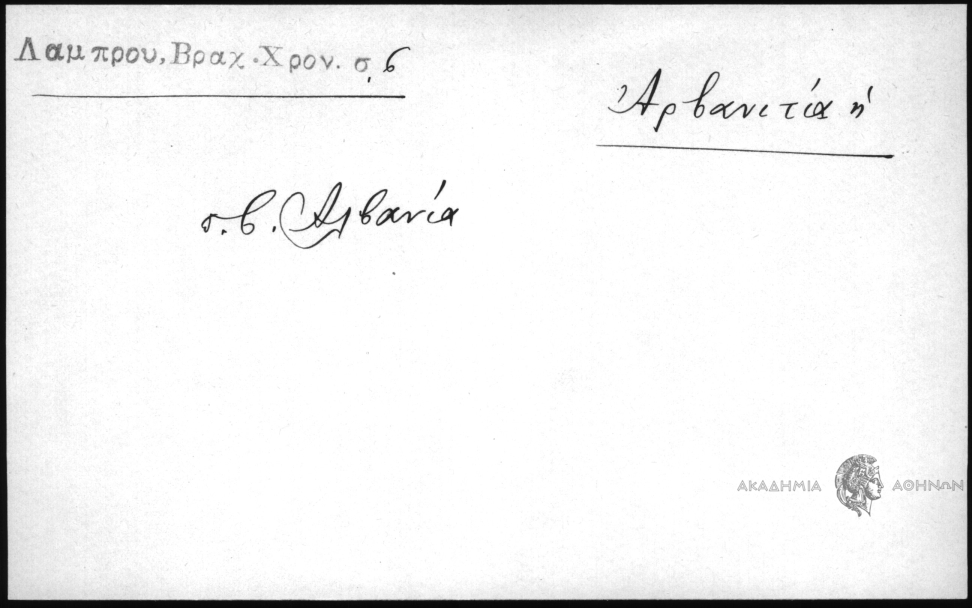 Λαμπρου, Βραχ. Χρον. σ. 6
Ἀρβανιτία ἡ
σ. β. Ἀλβανία
ΑΚΑΔΗΜΙΑ ΑΘΗΝΩΝ